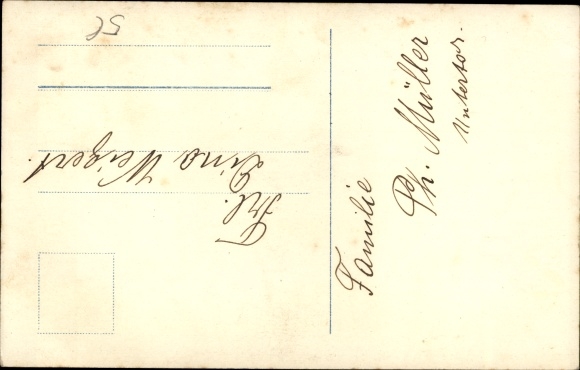 Frl.
Lina Weigert.
Familie
Ph. Müller
Untertor.